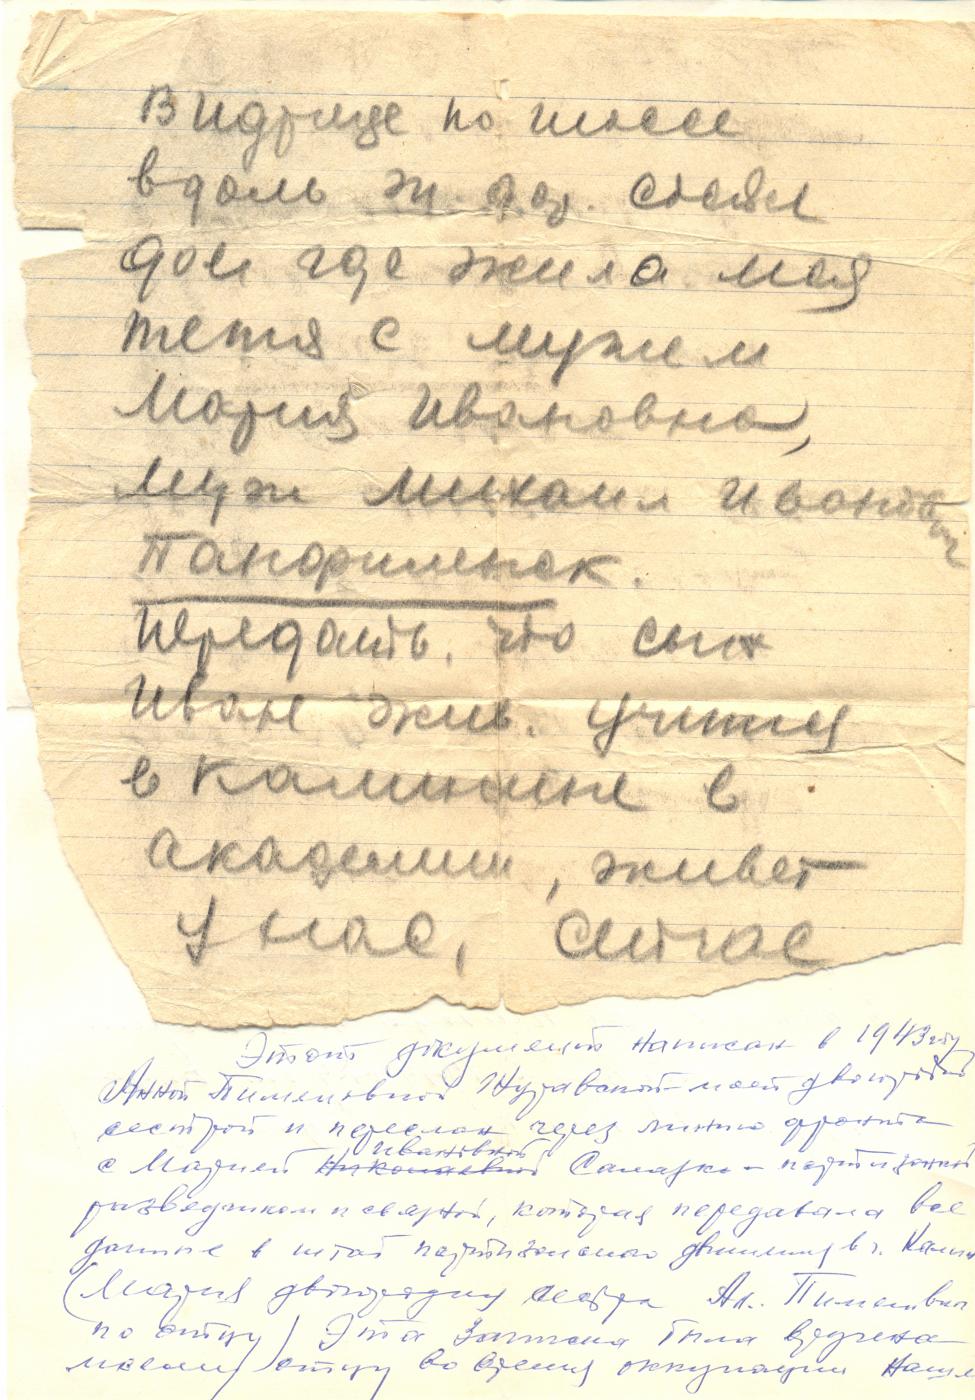 В Идрице по шоссе
вдоль ж. дор. стоял
дом где жила моя
тетя с мужем
Мария Ивановна,
муж Михаил Иванович
Панфиленок.
Передать, что сын
Иван жив. учится
в Калинине в
академии, живет
у нас, сейчас
Этот документ написан в 1943 году
Анной Пименовной Журавской - моей двоюродной
сестрой и переслан через линию фронта
Ивановной
с Марией Николаевной - партизанкой
разведчиком и связной, которая передавала все
данные в штаб партизанского движения в г. Калин
(Мария двоюродная сестра Ан. Пименовны
по отцу) Эта записка была вручена
моему отцу во время оккупации